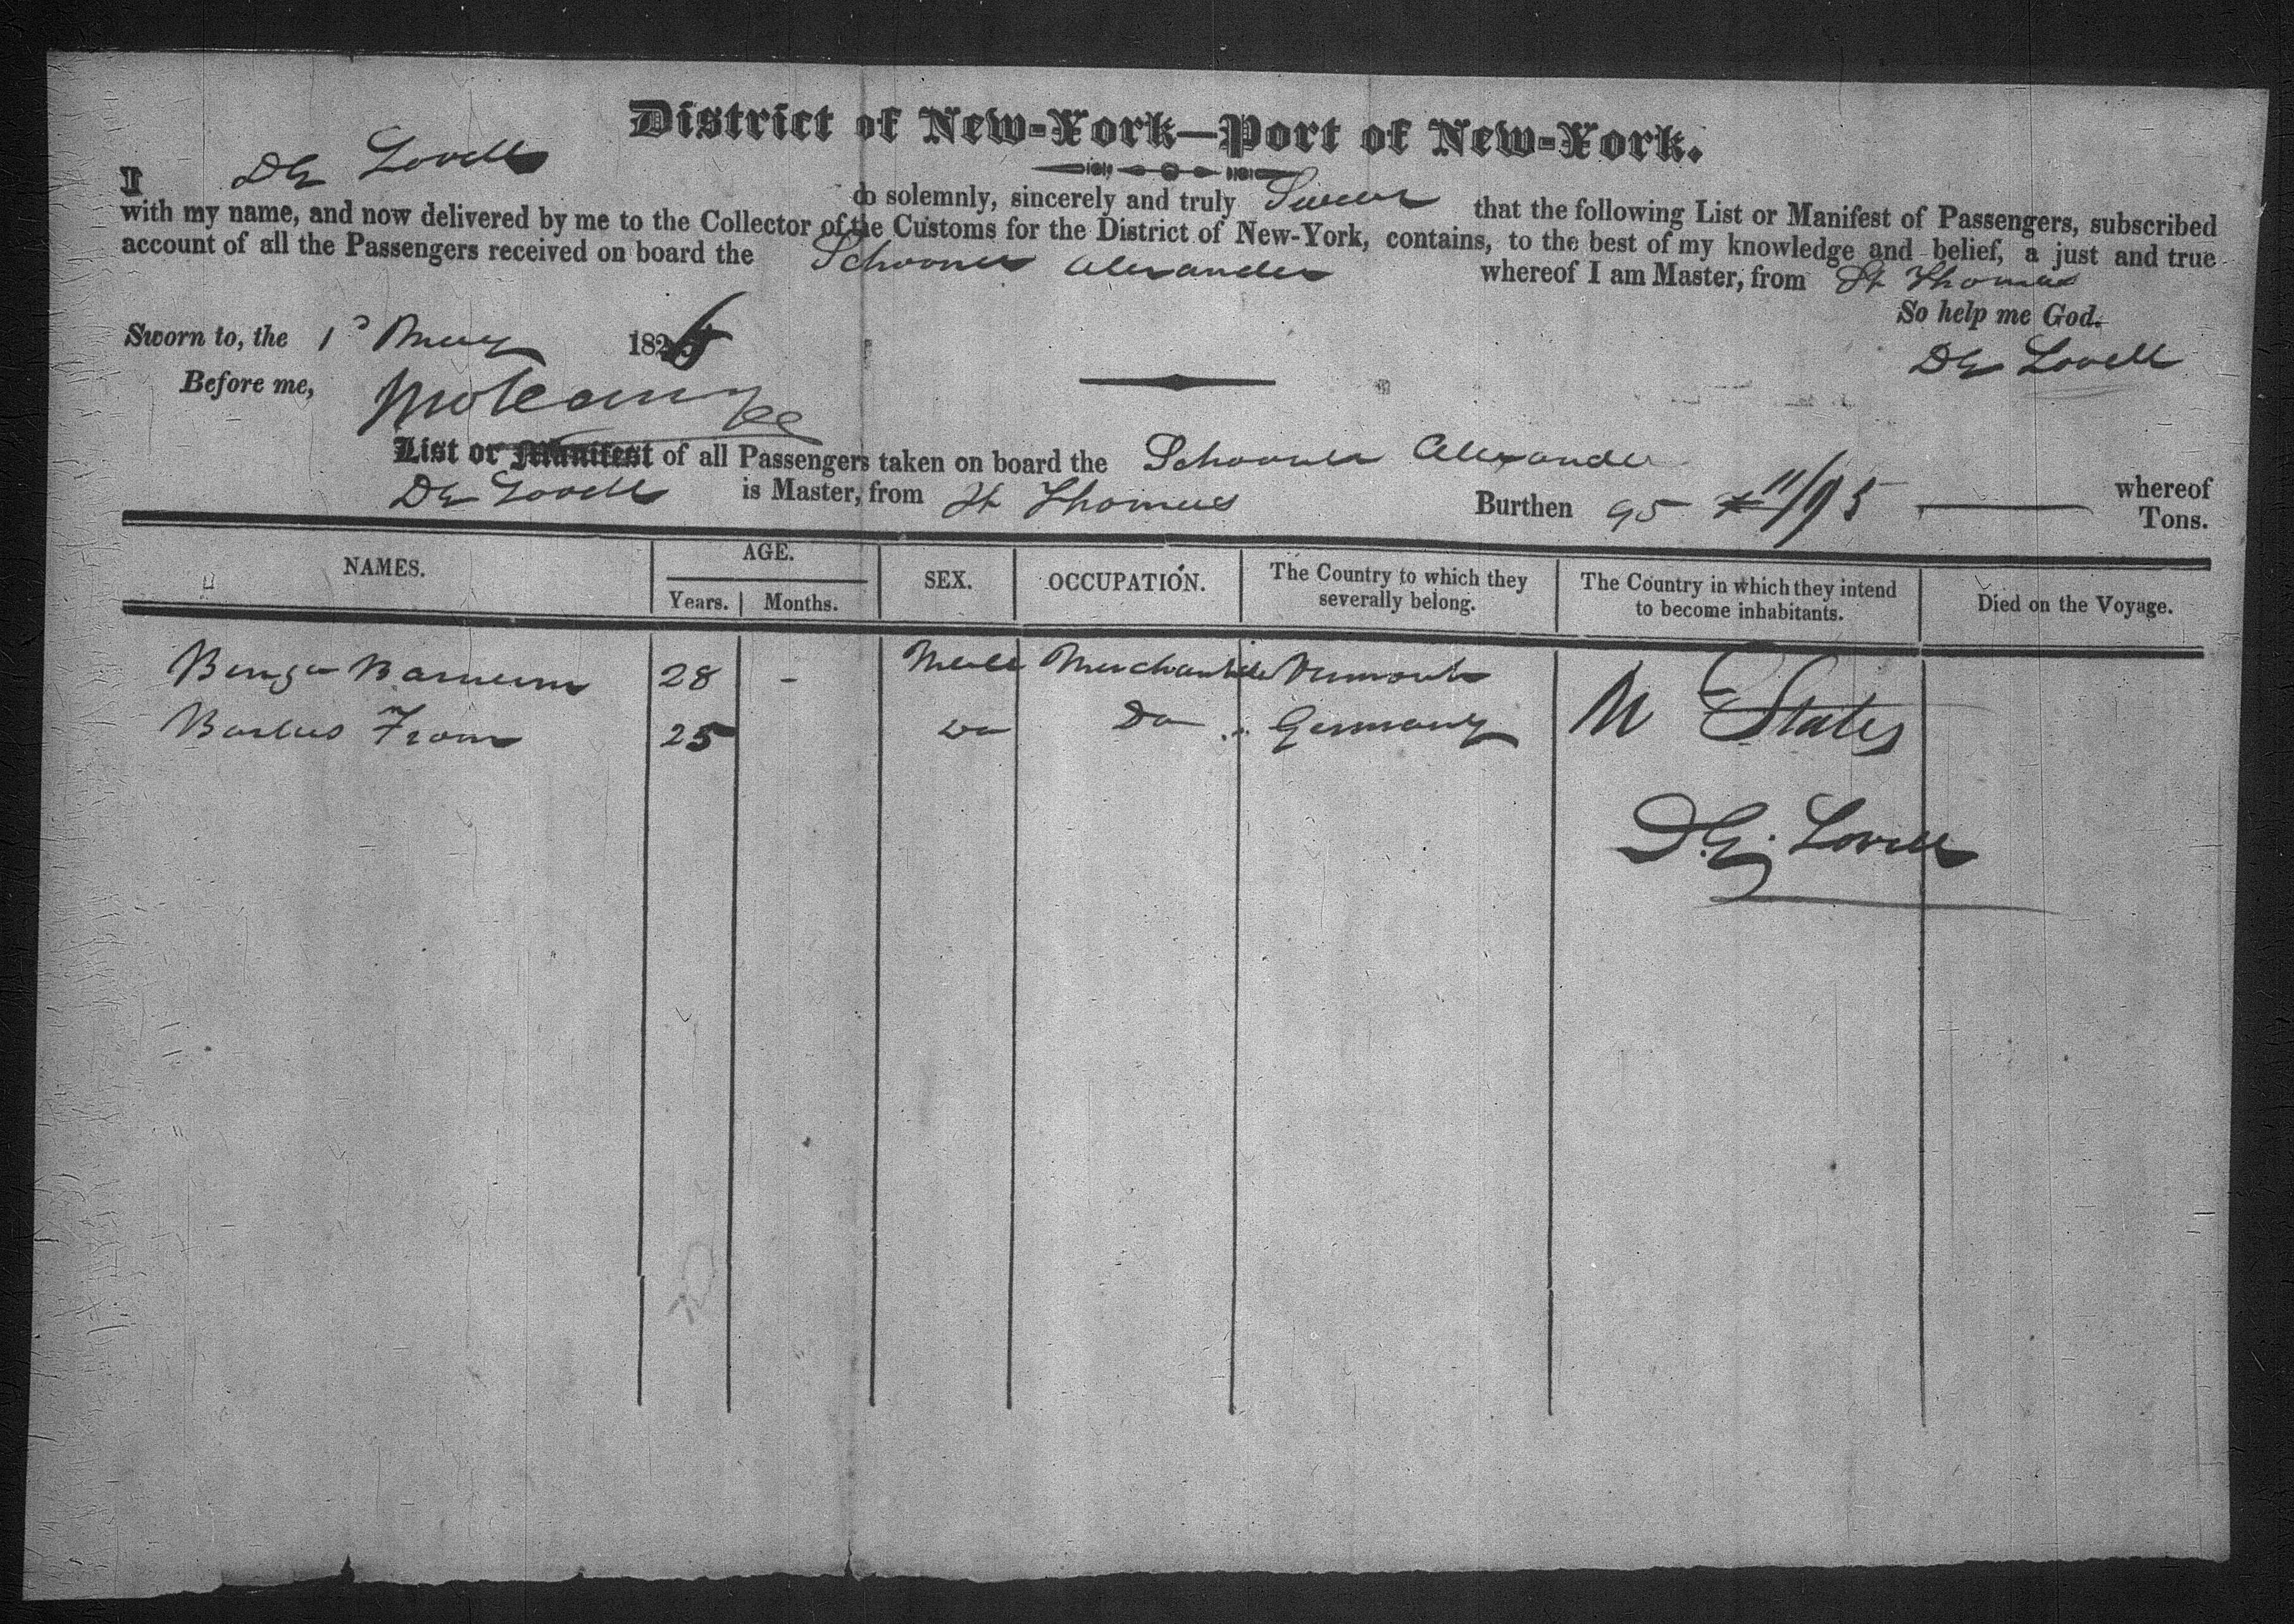 District of New-York—Port of New-York.
I DG Lovell do solemnly, sincerely and truly Swear that the following List or Manifest of Passengers, subscribed
with my name, and now delivered by me to the Collector of the Customs for the District of New-York, contains, to the best of my knowledge and belief, a just and true
account of all the Passengers received on board the Schooner Alexander whereof I am Master, from St Thomas
So help me God.
Sworn to, the 1st May 1826
DG Lovell
Before me,
List or Manifest of all Passengers taken on board the Schooner Alexander whereof
DG Lovell is Master, from St Thomas Burthen 95 11/95 Tons.
NAMES. AGE. SEX. OCCUPATION. The Country to which they severally belong. The Country in which they intend to become inhabitants. Died on the Voyage.
Years. Months.
Barnum 28 - Male Vermont
25 Do Do Germany U States
DG. Lovell